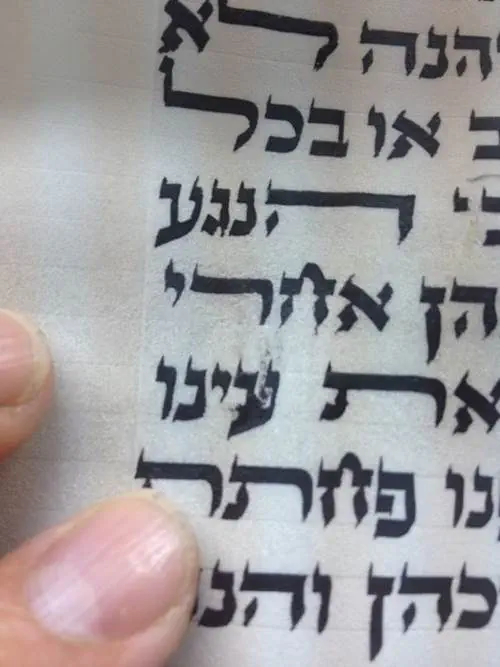 והנה לא
ב או בכל
הנגע
הן אחרי
את עינו
נו פחתת
כהן והנ